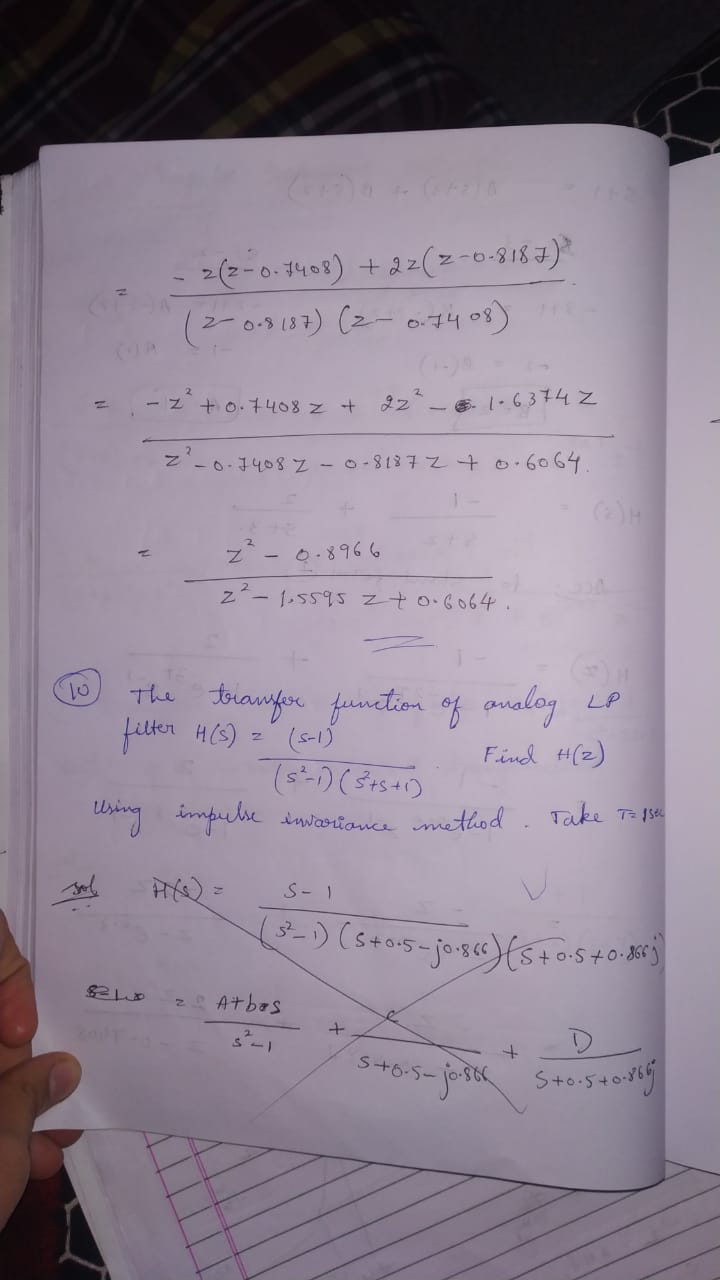 = - z(z-0.7408) + 2z(z-0.8187)
(z-0.8187) (z-0.7408)
= -z² + 0.7408 z + 2z² - 1.6374 z
z² - 0.7408 z - 0.8187 z + 0.6064.
= z² - 0.8966
z² - 1.5595 z + 0.6064.
(10) The transfer function of analog LP
filter H(s) = (s-1) Find H(z)
(s²-1) (s²+s+1)
Using impulse invariance method. Take T=1sec
sol H(s) = s-1
(s²-1) (s+0.5-j0.866) (s+0.5+0.866j)
= A+bs + c + D
s²-1 s+0.5-j0.866 s+0.5+0.866j